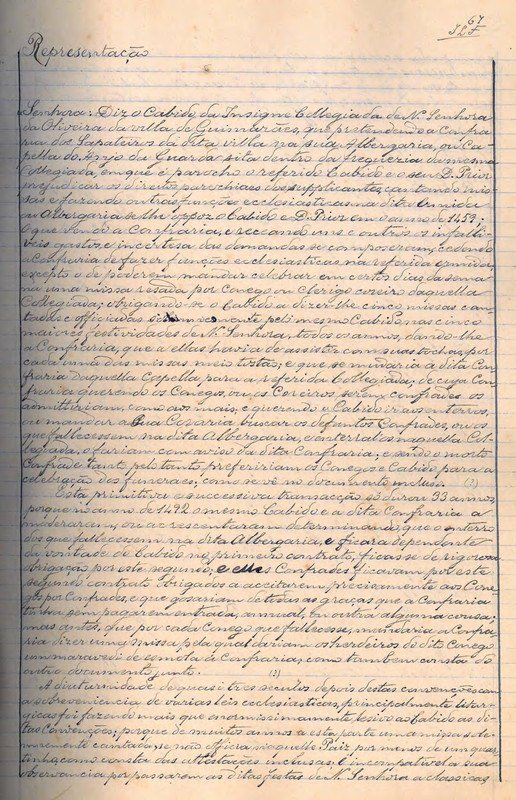 67
Representação
Senhora: Diz o Cabido da Insigne Collegiada de N. Senhora
da Oliveira da villa de Guimarães, que pretendendo a Confra-
ria dos Sapateiros da dita villa na sua Albergaria, ou Ca-
pella do Anjo da Guarda sita dentro da freguezia da mesma
Collegiada, em que é parocho o referido Cabido e o seu D. Prior
prejudicar os direitos parochiaes dos supplicantes, cantando mis-
sas e fazendo outras funções ecclesiasticas na dita Ermida
ou Albergaria se lhe oppoz o Cabido e D. Prior em o anno de 1459;
o que vendo a Confraria, e receando uns e outros os infalli-
veis gastos, e incertesa das demandas se composeram; cedendo
a Confraria de fazer funções ecclesiasticas na referida ermida,
excepto o de poderem mandar celebrar em certos dias da sema-
na uma missa resada por Conego ou Clerigo coreiro daquella
Collegiada; obrigando-se o Cabido a dizer-lhe cinco missas can-
tadas e officiadas pelo mesmo Cabido, nas cinco
maiores festividades de N. Senhora, todos os annos, dando-lhe
a Confraria, que a ellas havia de assistir com suas tochas, por
cada uma das missas meio tostão, e que se mudaria a dita Con-
fraria daquella Capella para a referida Collegiada; de cuja Con-
fraria querendo os Conegos, ou os Coreiros serem confrades os
admittiriam, como aos mais, e querendo o Cabido ir aos enterros,
ou mandar a sua Coraria buscar os defuntos Confrades, ou os
que fallecessem na dita Albergaria, e enterral-os naquella Col-
legiada, o fariam com aviso da dita Confraria; e sendo o morto
Confrade, tanto pelo tanto, prefeririam os Conegos e Cabido para a
celebração dos funeraes, como se vê no documento incluso.
Esta primitiva e successiva transacção só durou 33 annos,
porque no anno de 1492 o mesmo Cabido e a dita Confraria a
moderaram, ou accrescentaram determinando, que o enterro
dos que fallecessem na dita Albergaria, e ficara dependente
da vontade do Cabido no primeiro contrato, ficasse de rigorosa
obrigação por este segundo, e elles Confrades ficavam por este
segundo contrato obrigados a acceitarem precisamente aos Cone-
gos por Confrades, e que gosariam de todas as graças que a Confraria
tinha sem pagarem entrada, annual, ou outra alguma cousa;
mas antes, que por cada Conego que fallecesse, mandaria a Confra-
ria dizer uma missa pela qual dariam os herdeiros do dito Conego
um maravedi de esmola á Confraria, como tambem consta do
outro documento junto.
A diuturnidade de quasi tres seculos depois destas convenções com
a sobreveniencia de varias leis ecclesiasticas, principalmente litur-
gicas foi fazendo mais que enormissimamente lesivo ao Cabido as di-
tas Convenções, porque de muitos annos a esta parte uma missa sole-
mnemente cantada, se não officia, naquelle Paiz por menos de um quar-
tinho, como consta das attestações inclusas; É incompativel a sua
observancia por passarem as ditas festas de N. Senhora a classicas,